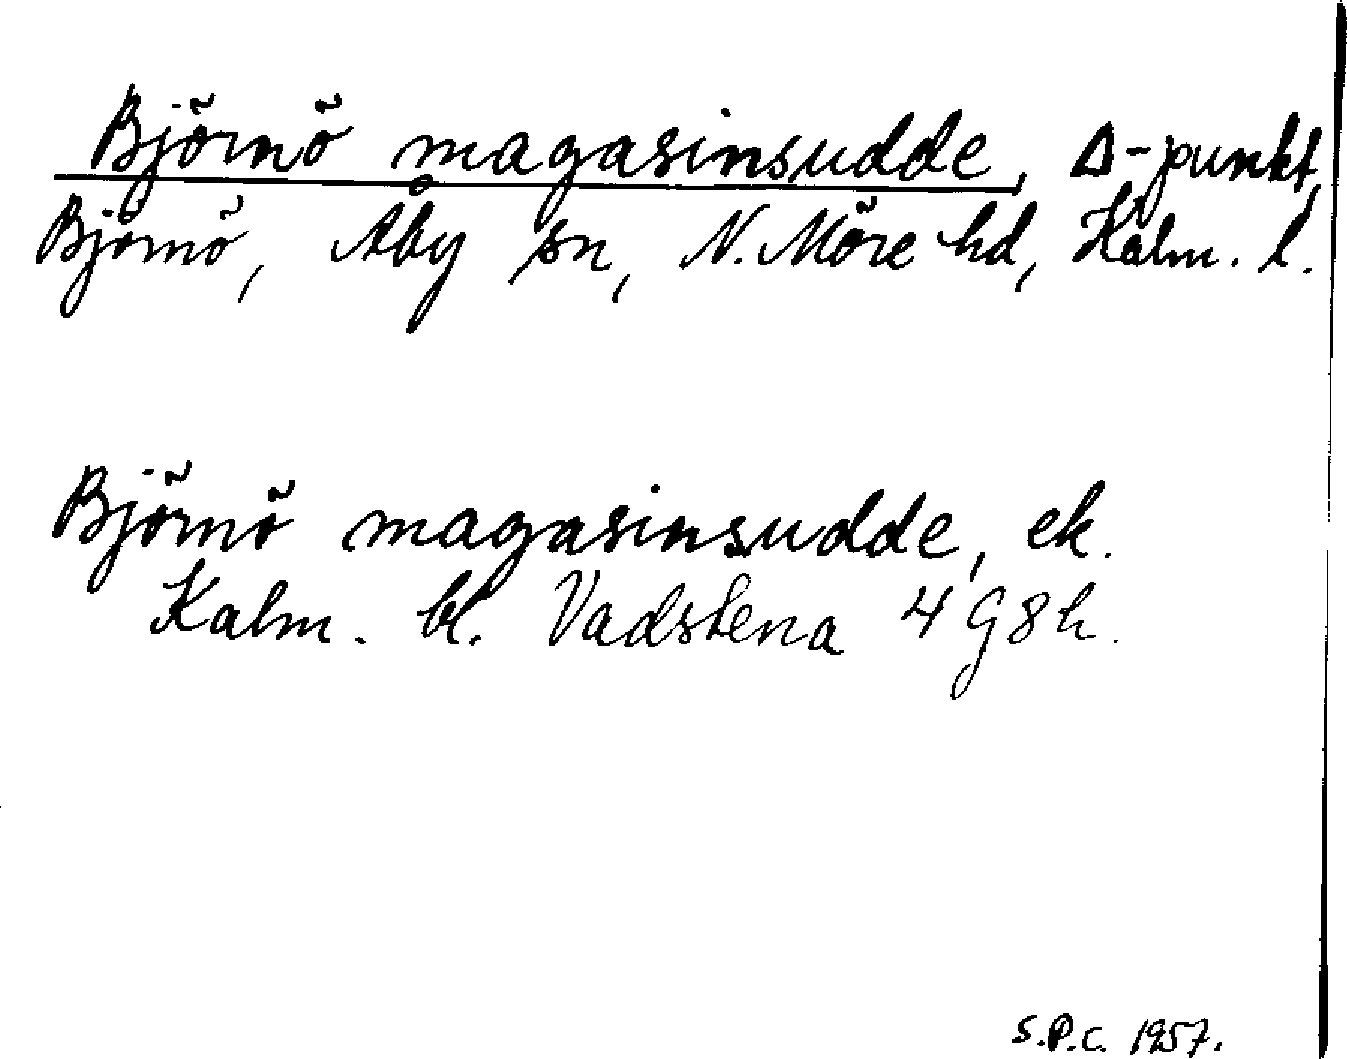 Björnö magasinsudde, Δ-punkt,
Björnö, Åby sn, N. Möre hd, Kalm. l.
Björnö magasinsudde, ek.
Kalm. bl. Vadstena 4 G 8 h.
S.P.C. 1957.